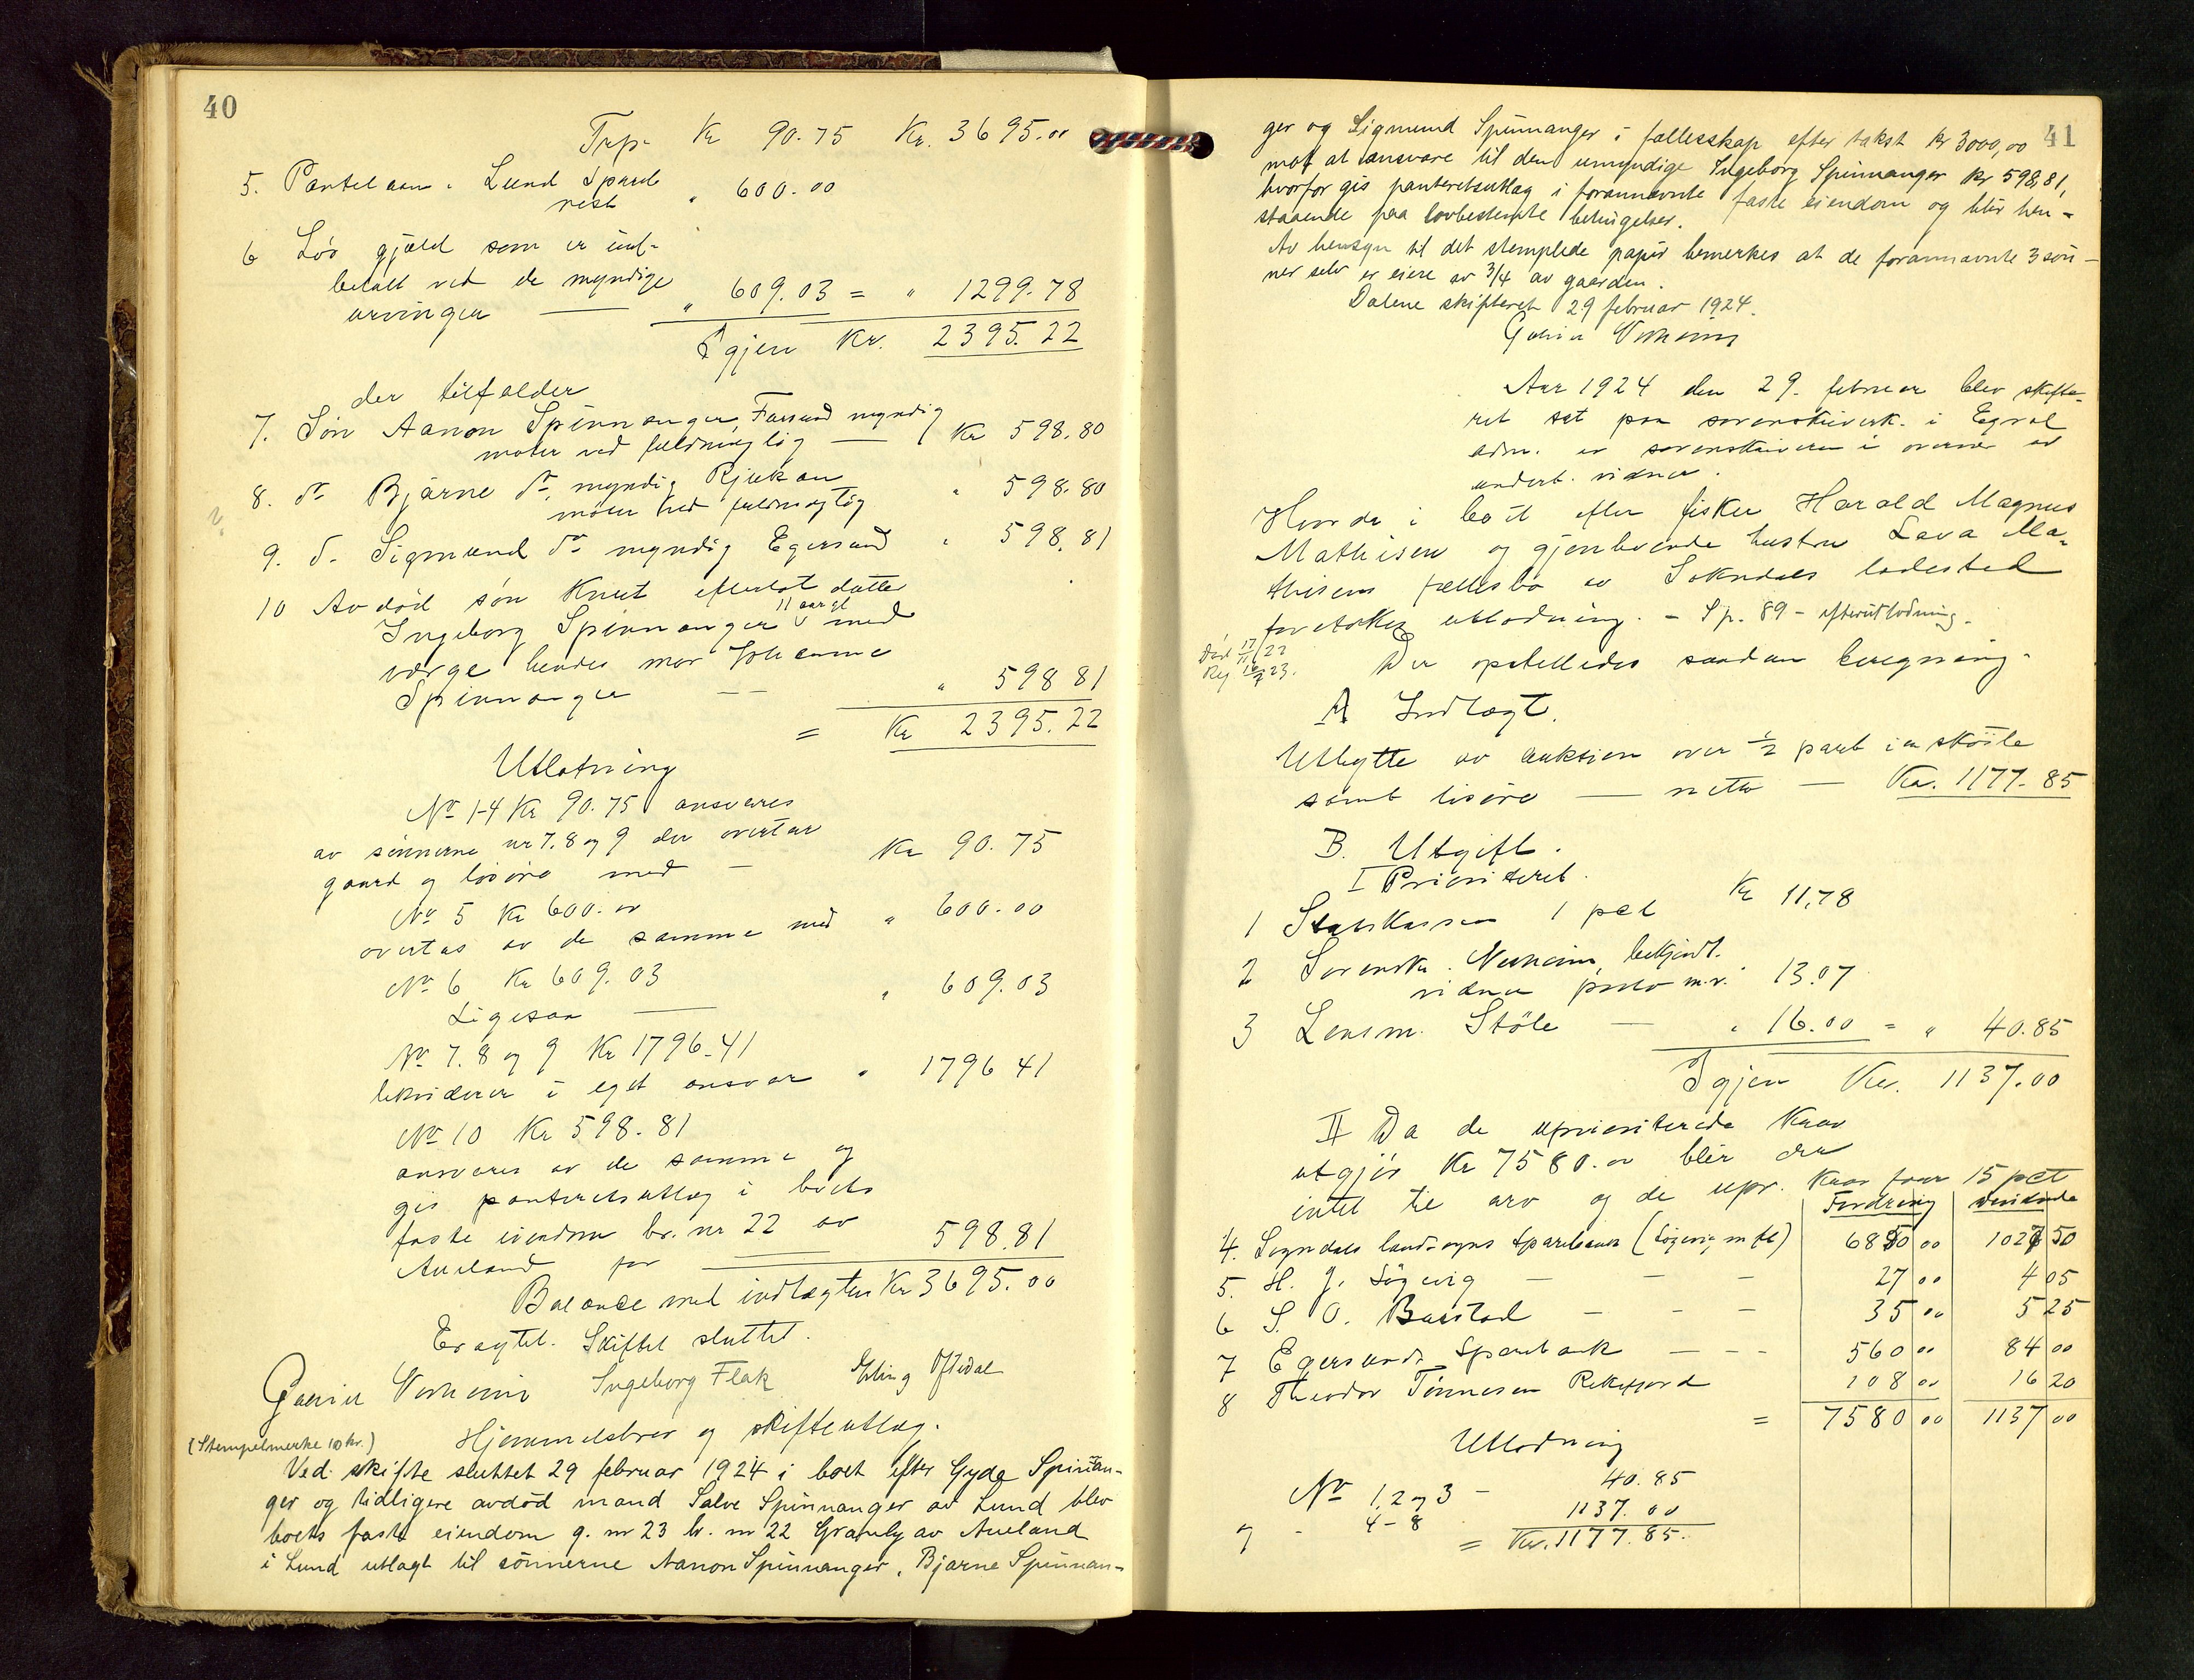 40
Trp. Kr 90.75 Kr. 3695.00
5. Pantelaan i Lund Spareb
rest " 600.00
6 Løs gjæld som er ind-
betalt ved de myndige
arvinger — " 609.03 = " 1299.78
Igjen Kr. 2395.22
der tilfalder
7. Søn Aanon Spinnanger, Farsund myndig
møter ved fuldmægtig — Kr 598.80
8. do Bjarne do, myndig Rjukan
møter ved fuldmægtig " 598.80
9. d. Sigmund do myndig Egersund " 598.81
10 Avdød søn Knut efterlat datter
11 aar gl
Ingeborg Spinnanger med
værge hendes mor Johanne
Spinnanger — " 598 81
= Kr 2395.22
Utlodning
No 1-4 Kr 90.75 ansvares
av sønnerne nr 7. 8 og 9 der overtar
gaard og løsøre med — Kr 90.75
No 5 Kr 600.00
overtas av de samme med " 600.00
No 6 Kr 609.03
Ligesaa — " 609.03
No 7. 8 og 9 Kr 1796.41
likviderer i eget ansvar " 1796 41
No 10 Kr 598.81
ansvares av de samme og
gis panteretsutlæg i boets
faste eiendom br. nr 22 av
Aueland for — 598.81
Balance med indtægten Kr 3695.00
Eragtet. Skiftet sluttet.
Ingeborg Flak Erling Oftedal
(Stempelmerke 10 kr.) Hjemmelsbrev og skifteutlæg.
Ved skifte sluttet 29 februar 1924 i boet efter Gyda Spinnan-
ger og tidligere avdød mand Salve Spinnanger av Lund blev
boets faste eiendom g. nr 23 br. nr 22 Granly av Aueland
i Lund utlagt til sønnerne Aanon Spinnanger, Bjarne Spinnan-
41
ger og Sigmund Spinnanger i fællesskap efter takst kr 3000,00
mot at ansvare til den umyndige Ingeborg Spinnanger kr 598,81,
hvorfor gis panteretsutlæg i forannævnte faste eiendom og blir hen-
staaende paa lovbestemte betingelser.
Av hensyn til det stemplede papir bemerkes at de forannævnte 3 søn-
ner selv er eiere av 3/4 av gaarden.
Dalene skifteret 29 februar 1924.
Aar 1924 den 29. februar blev skifte-
ret sat paa sorenskriverk. i Egersd
adm. av sorenskriveren i overvær av
undert. vidner.
Hvorda i boet efter fisker Harald Magnus
Mathisen og gjenlevende hustru Lava Ma-
thisens fællesbo av Sokndals ladested
foretokes utlodning. - Sp. 89 - efterutlodning.
Død 17/11 22
Reg 16/7 23. Der opstilledes saadan beregning.
A Indtægt.
Utbytte av auktion over 1/2 part i en skøite
samt løsøre — netto — Kr. 1177.85
B. Utgift.
I Prioriteret.
1 Statskassen 1 pct Kr 11,78
2 Sorenskr. , bekjendt.
vidner porto m.v. 13.07
3 Lensm. Støle — " 16.00 = " 40.85
Igjen Kr. 1137.00
II Da de uprioriterede krav
utgjør Kr 7580.00 blir der
intet til arv og de upr. krav faar 15 pct
Fordring Dividende
4. Sogndals landsogns Sparebank (Løgevig m fl) 6850 00 1027 50
5. H. J. Løgevig — — — 27 00 4 05
6 S. O. Barstad — — — 35 00 5 25
7 Egersunds Sparebank — — — 560 00 84 00
8 Theodor Tønnesen Rekefjord 108 00 16 20
= 7580 00 1137 00
Utlodning
No 1, 2 og 3 — 40.85
og - 4-8 1137.00
= Kr. 1177.85.